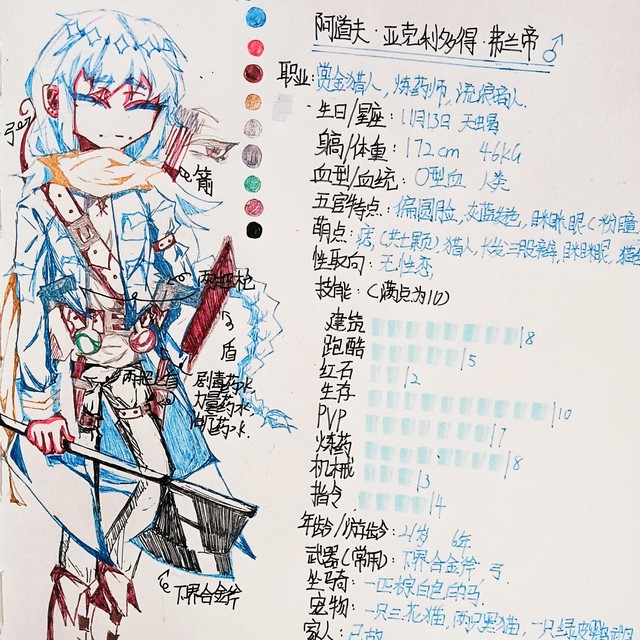 阿道夫·亚克利多得·弗兰帝♂
职业:赏金猎人,炼药师,流浪商人.
生日/星座:11月13日 天蝎
身高/体重:172cm 46kG
血型/血统:O型血 人类
五官特点:偏圆脸,灰蓝发色,眯眯眼(粉瞳
萌点:痣(共七颗)猎人,长发三股辫,眯眯眼,
性取向:无性恋,
技能:(满点为10)
建筑 8
跑酷 5
红石 2
生存 10
PVP 7
炼药 8
机械 3
指令 4
年龄/游龄:21岁 6年
武器(常用):下界合金斧 弓
坐骑:一匹棕白色的马
宠物:一只三花猫,两只黑猫,一只绿皮鹦鹉
家人:已故
弓
箭
盾
剧毒药水
力量药水
下界合金斧